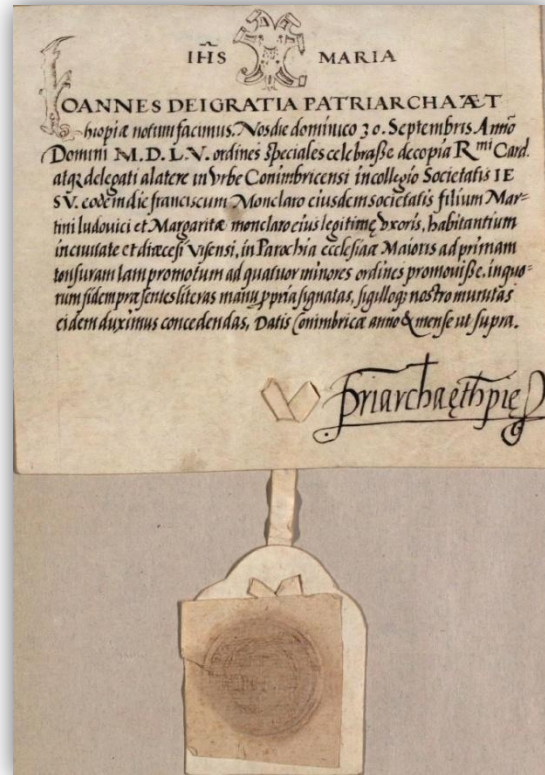 IHS MARIA
IOANNES DEI GRATIA PATRIARCHA ÆT
hiopiæ notum facimus. Nos die dominico 30. Septembris Anno
Domini M.D.LV. ordines speciales celebraße de copia R.mi Card.
atq; delegati a latere in Vrbe Conimbricensi in collegio Societatis IE
SV. eodem die franciscum Monclaro eiusdem societatis filium Mar-
tini ludouici et Margaritæ monclaro eius legitimę vxoris, habitantium
in ciuitate et diæcesi Visensi, in Parochia ecclesiæ Maioris ad primam
tonsuram iam promotum ad quatuor minores ordines promouiße. in quo-
rum fidem præsentes literas manu ppria signatas, sigilloq; nostro munitas
eidem duximus concedendas, Datis Conimbricæ anno & mense ut supra.